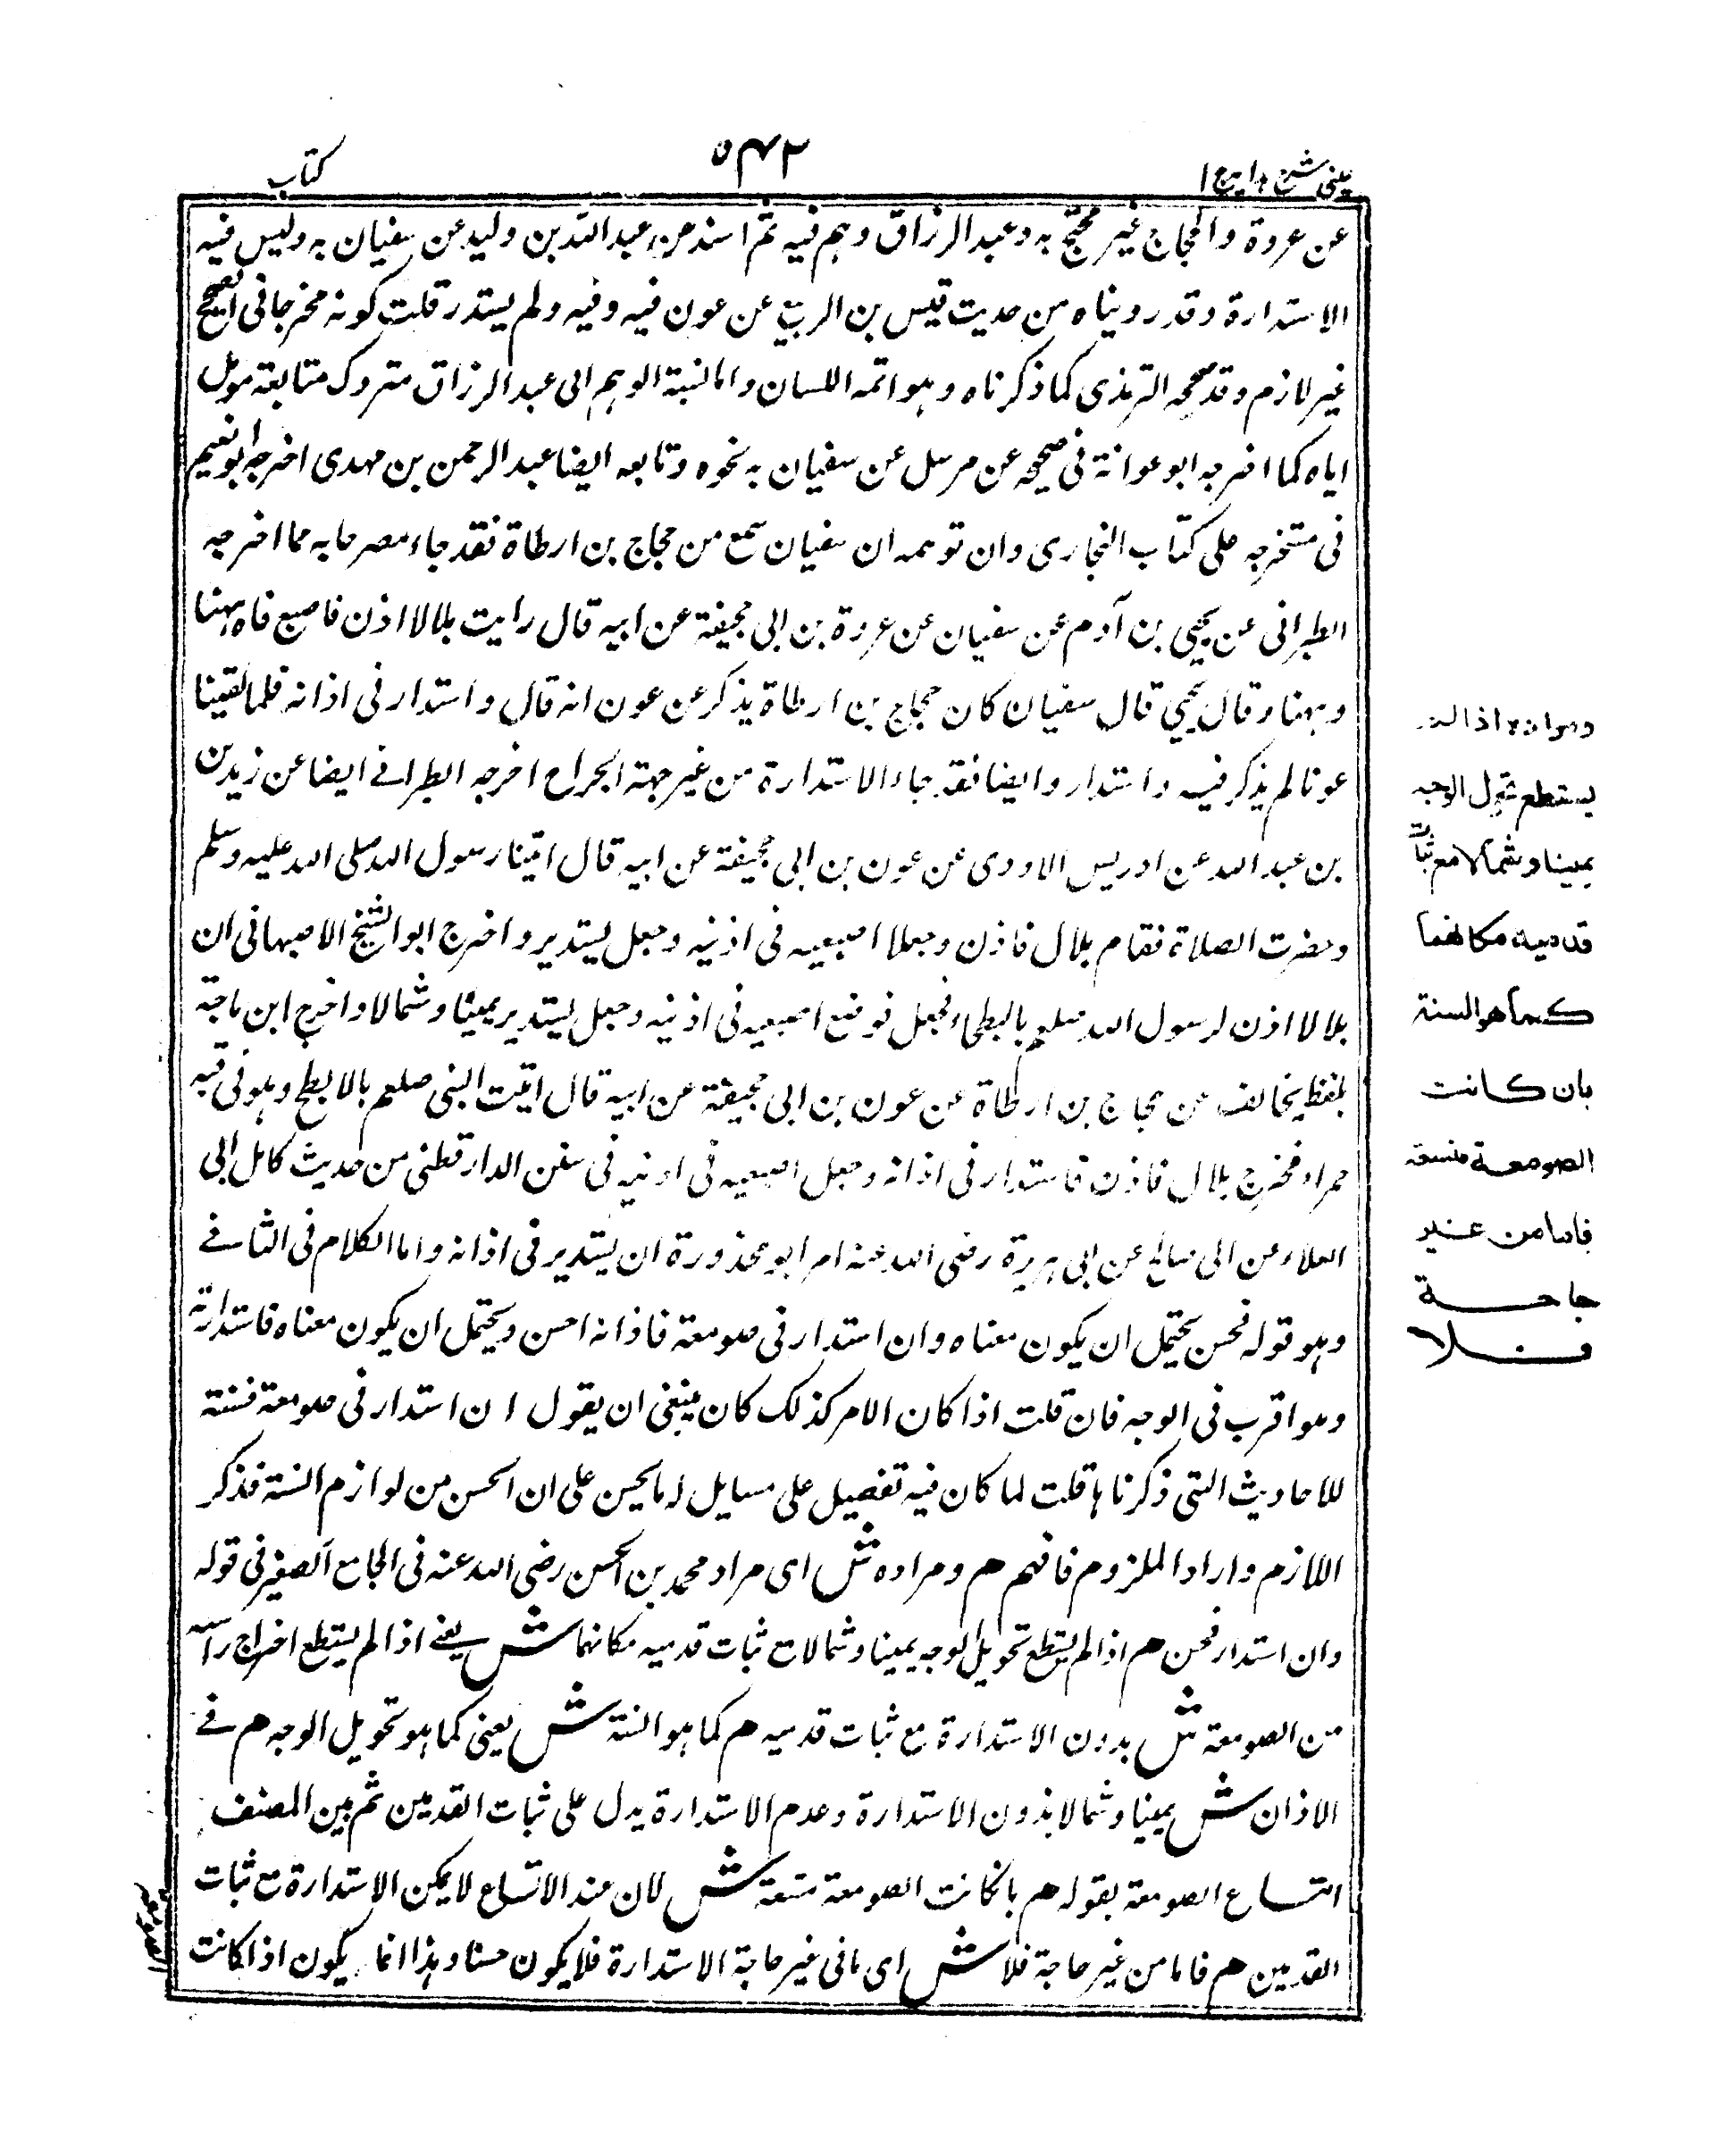 عینی شرح ہدایہ ج ۱
۵۴۲
کتاب
عن عروة والحجاج غیر محتج به وعبد الرزاق وہم فیه ثم اسند عن عبد الله بن ولید عن سفیان به ولیس فیه
الاستدارة وقد رویناه من حدیث قیس بن الربیع عن عون فیه وفیه ولم یستدر قلت کونه مخرجا فی الصحیح
غیر لازم وقد صححه الترمذی کما ذکرناه وہو ائمه اللسان واما نسبة الوہم الی عبد الرزاق متروک متابعة مومل
ایاه کما اخرجه ابو عوانة فی صحیحه عن مرسل عن سفیان به نحوه وتابعه ایضا عبد الرحمن بن مہدی اخرجه ابو نعیم
فی مستخرجه علی کتاب البخاری وان توہمه ان سفیان سمع من حجاج بن ارطاة فقد جاء مصرحا به مما اخرجه
الطبرانی عن یحیی بن آدم عن سفیان عن عروة بن ابی جحیفة عن ابیه قال رایت بلالا اذن فاصبع فاه ہہنا
وہہنا وقال یحیی قال سفیان کان حجاج بن ارطاة یذکر عن عون انه قال واستدار فی اذانه فلما لقینا
عونا لم یذکر فیه واستدار وایضا فقد جاء الاستدارة من غیر جہة الجراح اخرجه الطبرانے ایضا عن زید بن
بن عبد الله عن ادریس الاودی عن عون بن ابی جحیفة عن ابیه قال اتینا رسول الله صلی الله علیه وسلم
وحضرت الصلاة فقام بلال فاذن وجعلا اصبعیه فی اذنیه وجعل یستدیر واخرج ابو الشیخ الاصبہانی ان
بلالا اذن لرسول الله صلعم بالبطحاء فجعل فوضع اصبعیه فی اذنیه وجعل یستدیر یمینا وشمالا واخرج ابن ماجة
بلفظ یخالف عن حجاج بن ارطاة عن عون بن ابی جحیفة عن ابیه قال اتیت النبی صلعم بالابطح وہو فی قبه
حمراء فخرج بلال فاذن فاستدار فی اذانه وجعل اصبعیه فی اذنیه فی سنن الدارقطنی من حدیث کامل ابی
العلاء عن ابی صالح عن ابی ہریرة رضی الله عنه امر ابو محذورة ان یستدیر فی اذانه واما الکلام فی الثانے
وہو قوله فحسن یحتمل ان یکون معناه وان استدار فی صومعة فاذانه احسن ویحتمل ان یکون معناه فاستدارته
وہو اقرب فی الوجه فان قلت اذا کان الامر کذلک کان ینبغی ان یقول ان استدار فی صومعة فسنة
للاحادیث التی ذکرناہا قلت لما کان فیه تفصیل علی مسایل له ما یحسن علی ان الحسن من لوازم السنة فذکر
اللازم واراد الملزوم فافہم ھم ومراده ش ای مراد محمد بن الحسن رضی الله عنه فی الجامع الصغیر فی قوله
وان استدار فحسن ھم اذا لم یستطع تحویل الوجه یمینا وشمالا مع ثبات قدمیه مکانہما ش یعنے اذا لم یستطع اخراج راسه
من الصومعة ش بدون الاستدارة مع ثبات قدمیه ھم کما ہو السنة ش یعنی کما ہو تحویل الوجه ھم فے
الاذان ش یمینا وشمالا بدون الاستدارة وعدم الاستدارة یدل علی ثبات القدمین ثم بین المصنف
اتساع الصومعة بقوله ھم بان کانت الصومعة متسعة ش لان عند الاتساع لا یمکن الاستدارة مع ثبات
القدمین ھم فاما من غیر حاجة فلا ش ای ما فی غیر حاجة الاستدارة فلا یکون حسنا وہذا انما یکون اذا کانت
ومراده اذا لم
یستطع تحول الوجه
یمینا وشمالا مع ثبات
قدمیه مکانهما
کما هو السنة
بان کانت
الصومعة متسعة
فاما من غیر
حاجة
فلا